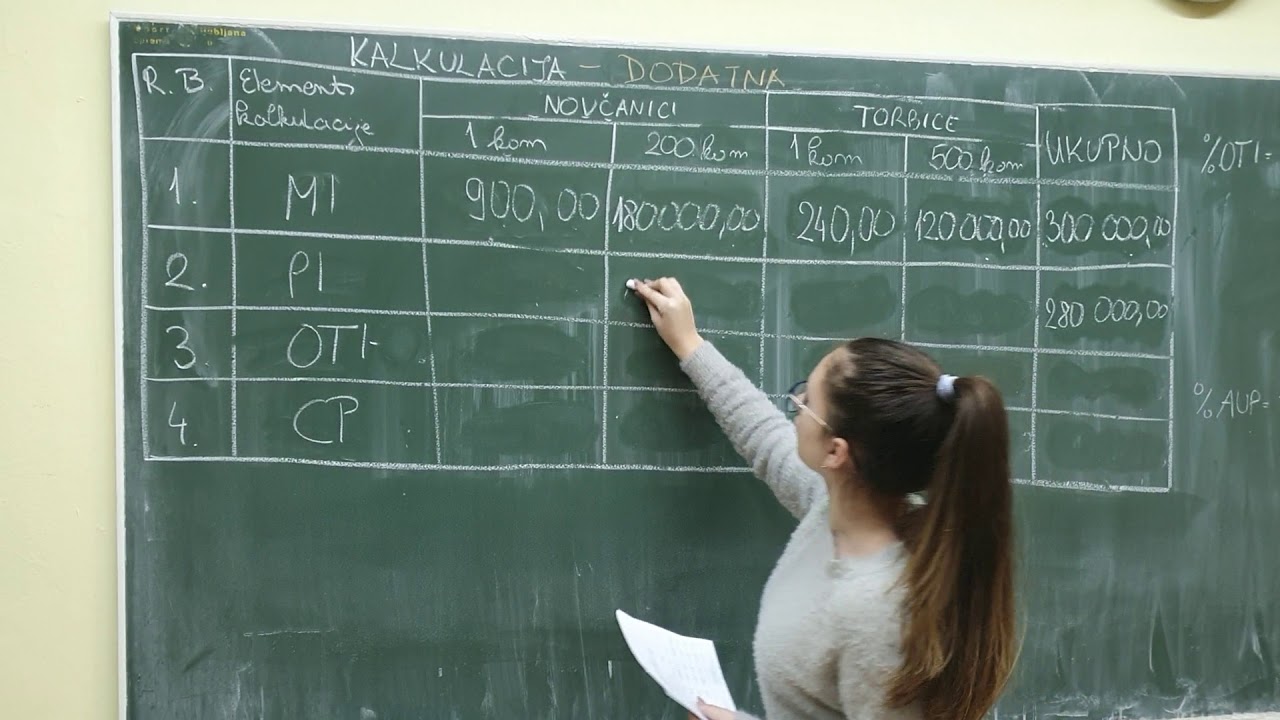 KALKULACIJA - DODATNA
R.B. Elementi kalkulacije NOVČANICI TORBICE UKUPNO
1 kom 200 kom 1 kom 500 kom
1. MI 900,00 180000,00 240,00 120 000,00 300 000,00
2. PI 280 000,00
3. OTI
4. CP
%OTI=
%AUP=